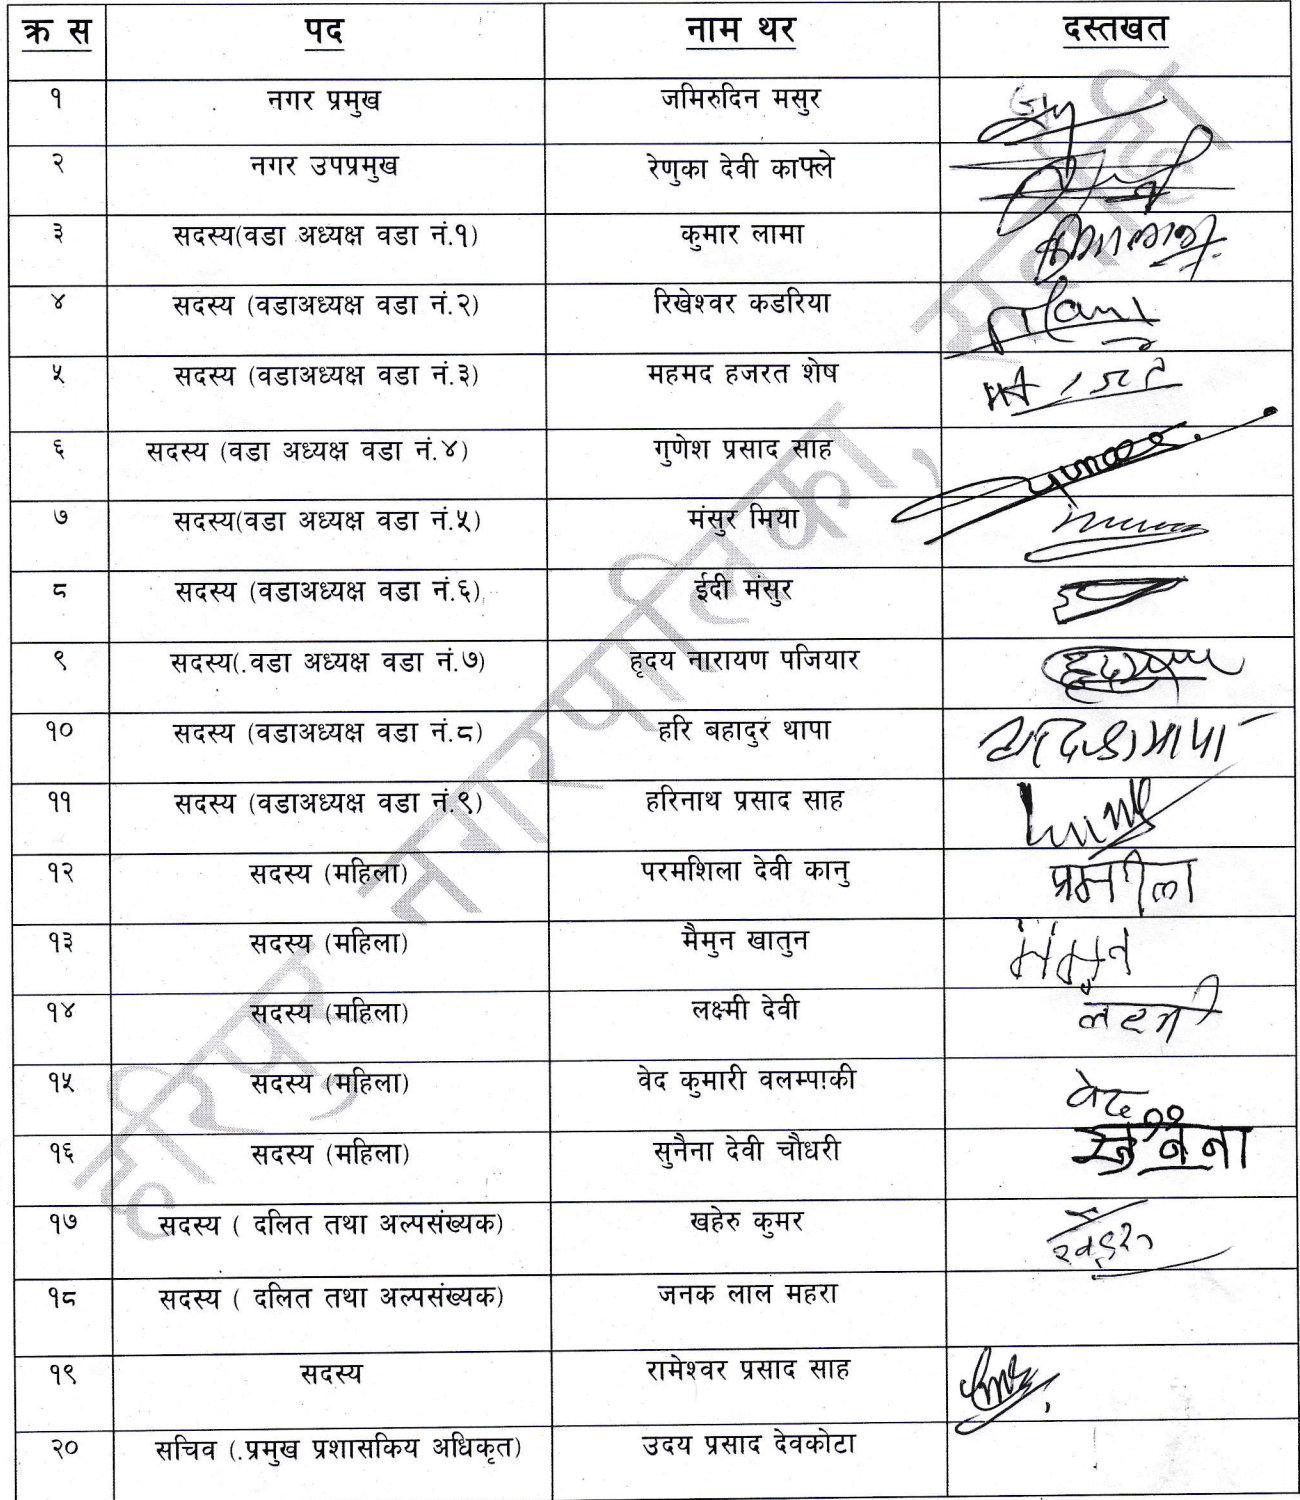 क्र स पद नाम थर दस्तखत
१ नगर प्रमुख जमिरुदिन मसुर
२ नगर उपप्रमुख रेणुका देवी काफ्ले
३ सदस्य(वडा अध्यक्ष वडा नं.१) कुमार लामा
४ सदस्य (वडाअध्यक्ष वडा नं.२) रिखेश्वर कडरिया
५ सदस्य (वडाअध्यक्ष वडा नं.३) महमद हजरत शेष
६ सदस्य (वडा अध्यक्ष वडा नं.४) गुणेश प्रसाद साह
७ सदस्य(वडा अध्यक्ष वडा नं.५) मंसुर मिया
८ सदस्य (वडाअध्यक्ष वडा नं.६) ईदी मंसुर
९ सदस्य(.वडा अध्यक्ष वडा नं.७) हृदय नारायण पजियार
१० सदस्य (वडाअध्यक्ष वडा नं.८) हरि बहादुर थापा
११ सदस्य (वडाअध्यक्ष वडा नं.९) हरिनाथ प्रसाद साह
१२ सदस्य (महिला) परमशिला देवी कानु
१३ सदस्य (महिला) मैमुन खातुन
१४ सदस्य (महिला) लक्ष्मी देवी
१५ सदस्य (महिला) वेद कुमारी वलम्पाकी वेद
१६ सदस्य (महिला) सुनैना देवी चौधरी
१७ सदस्य ( दलित तथा अल्पसंख्यक) खहेरु कुमर
१८ सदस्य ( दलित तथा अल्पसंख्यक) जनक लाल महरा
१९ सदस्य रामेश्वर प्रसाद साह
२० सचिव (.प्रमुख प्रशासकिय अधिकृत) उदय प्रसाद देवकोटा
हरिपुर नगरपालिका, सर्लाही